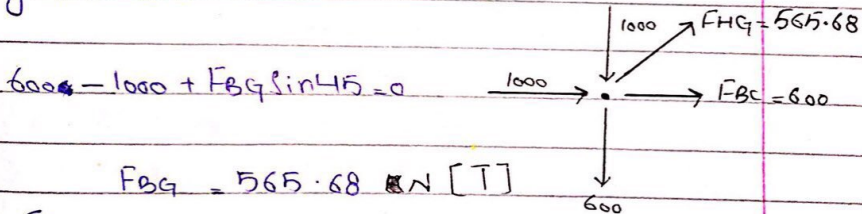 1000 FHG = 565.68
600 - 1000 + FBG Sin45 = 0 1000 FBC = 600
FBG = 565.68 N [T]
600